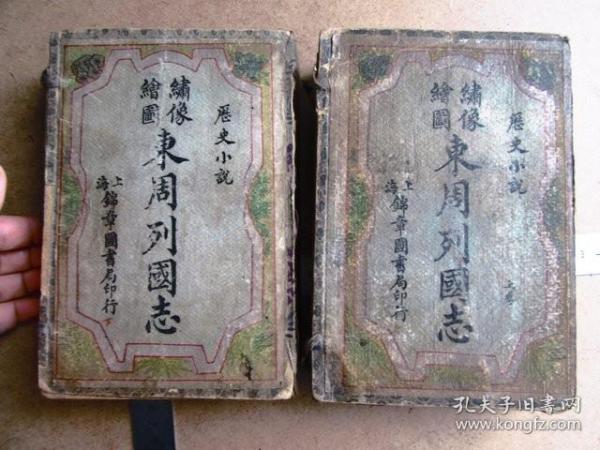 歷史小說
繡像
繪圖
東周列國志
上海錦章圖書局印行
歷史小說
繡像
繪圖
東周列國志
上海錦章圖書局印行
孔夫子旧书网
www.kongfz.com